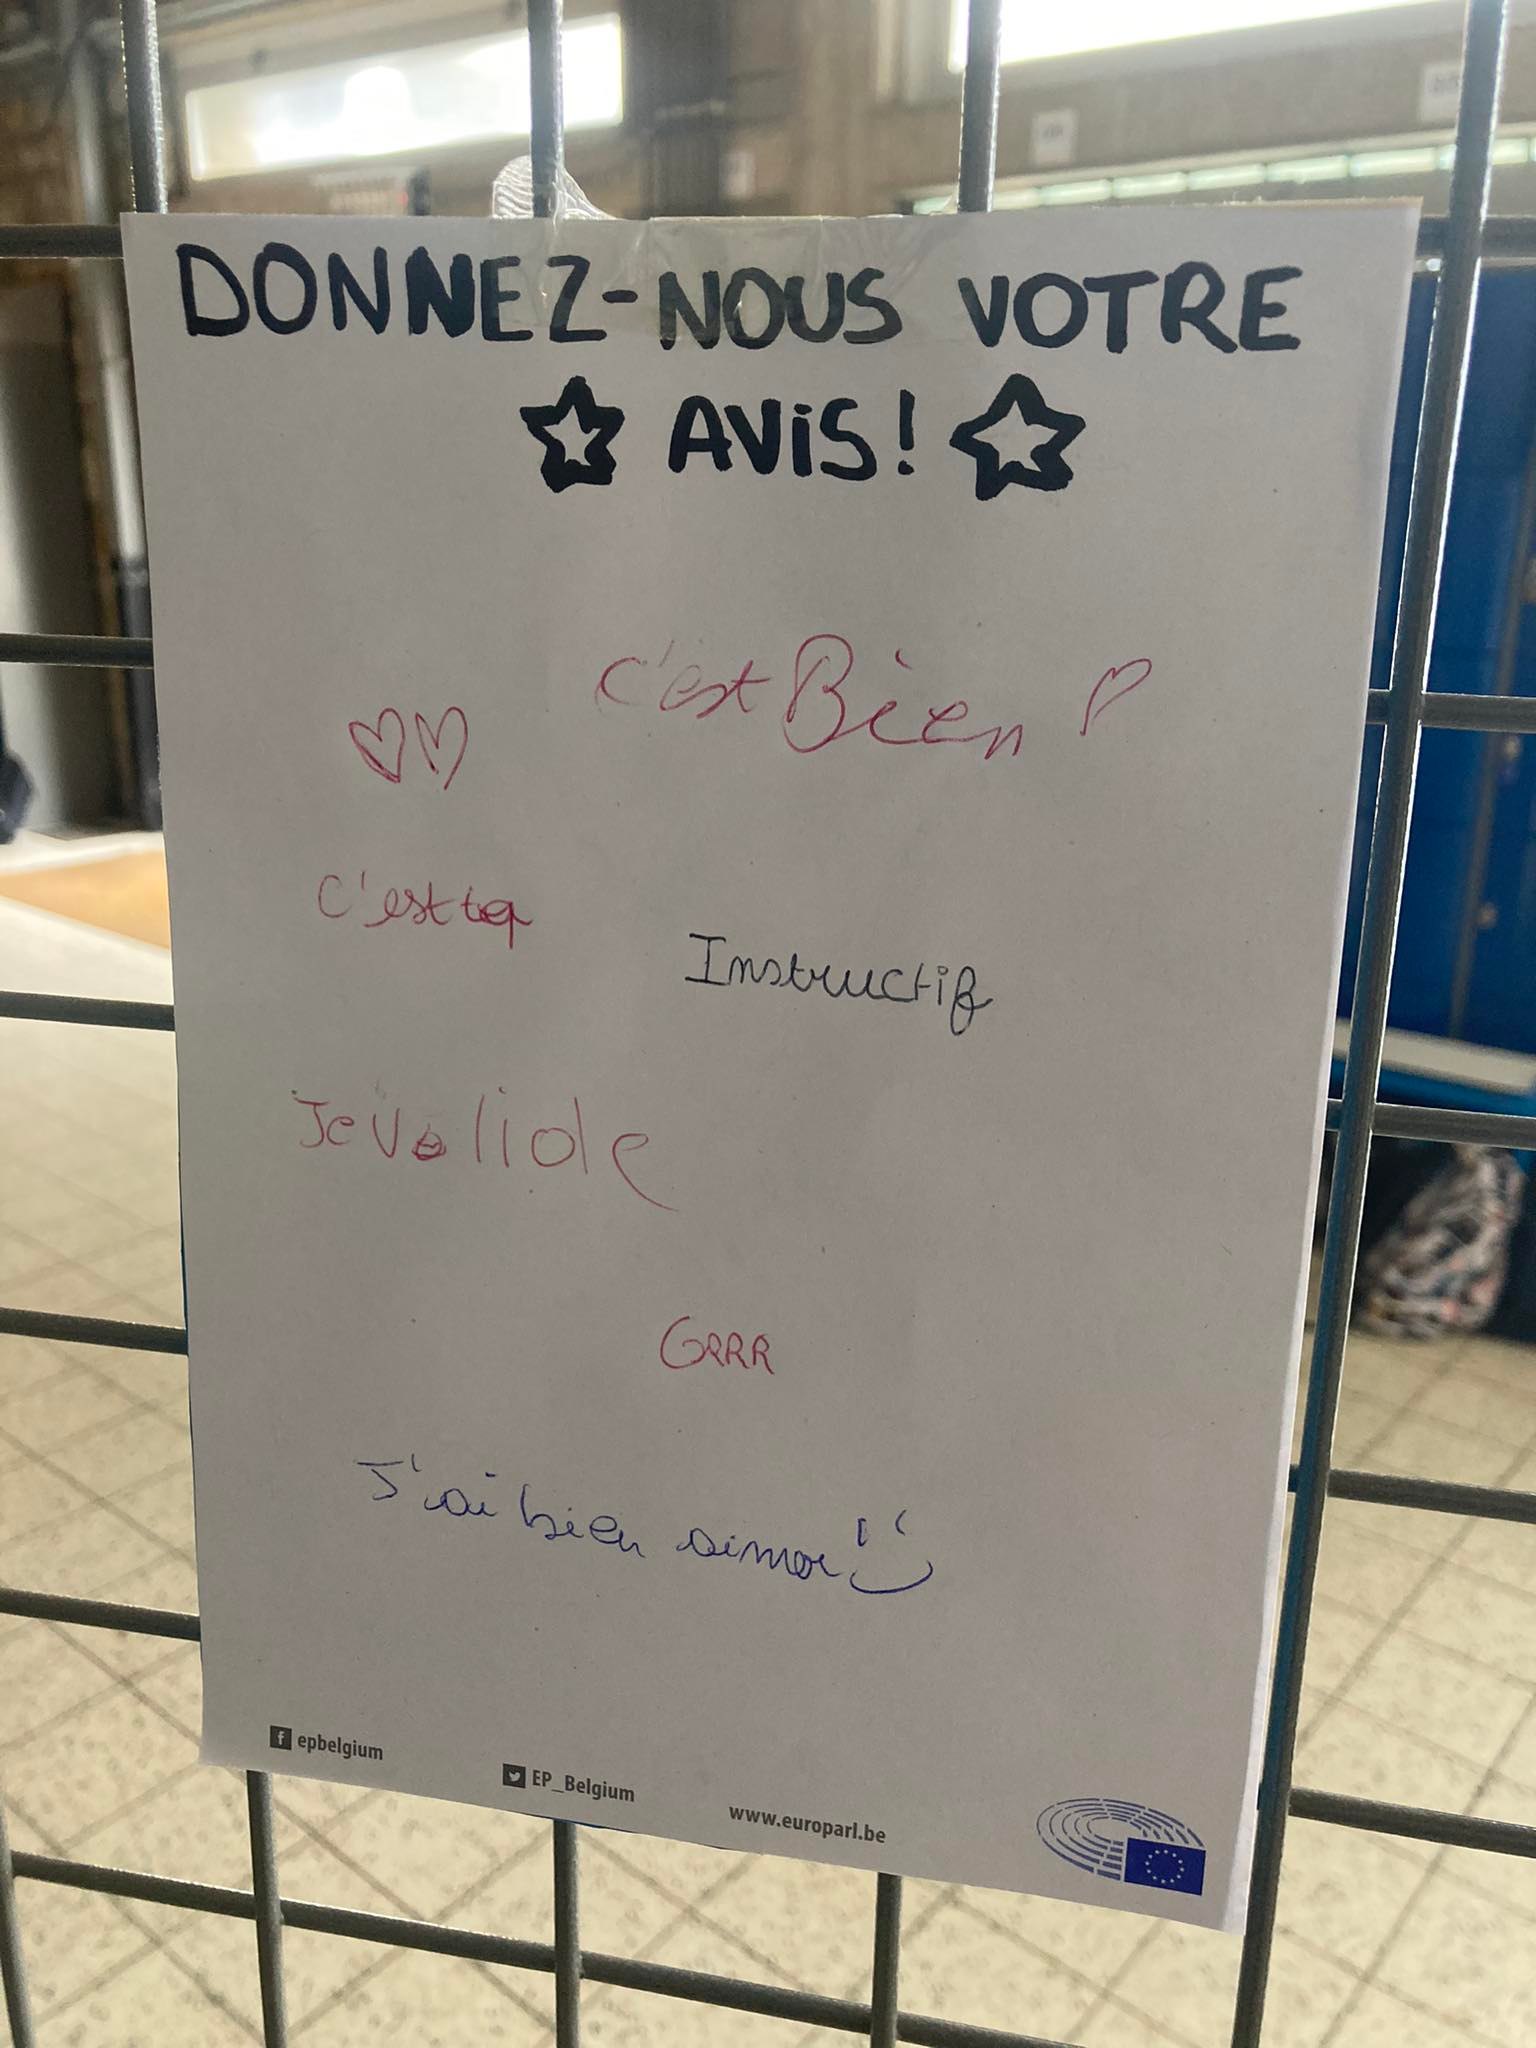 DONNEZ-NOUS VOTRE
AVIS!
c'est Bien
C'est top
Instructif
Je valide
GRRR
J'ai bien aimer
epbelgium
EP_Belgium
www.europarl.be